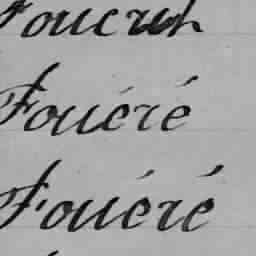 Foucrit
Fouéré
Fouéré